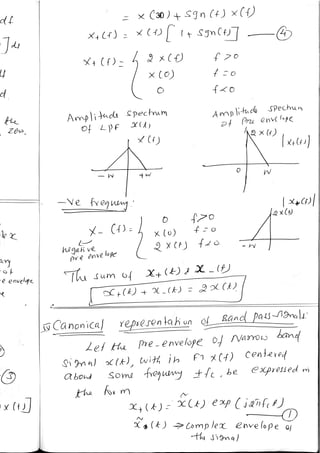 df
= x (30) + sgn (f) x (f)
X+ (f) = x (f) [ 1 + sgn (f)] — (4)
X+ (f) = { 2 x (f)   f > 0
x (0)   f = 0
0   f < 0
the
zero.
Amplitude spectrum
of LPF x(t)
x (f)
-W   +W
Amplitude spectrum
of Pre envelope
2 x(0)   | x+(f) |
0   W
-Ve frequency:
X- (f) = { 0   f > 0
x (0)   f = 0
2 x (f)   f < 0
Negative
pre envelope
| x+(f) |
2 x(0)
-W
The sum of x+(t) & x-(t)
x+(t) + x-(t) = 2 x(t)
e envelope
Canonical representation of Band pass-signals:
Let the pre-envelope of Narrow band
signal x(t), with in FT x(f) centered
about some frequency ± fc, be expressed in
the form
x+(t) = x̃(t) exp (j2πfct) (1)
x̃(t) → complex envelope of
the signal
(5)
x (f)]